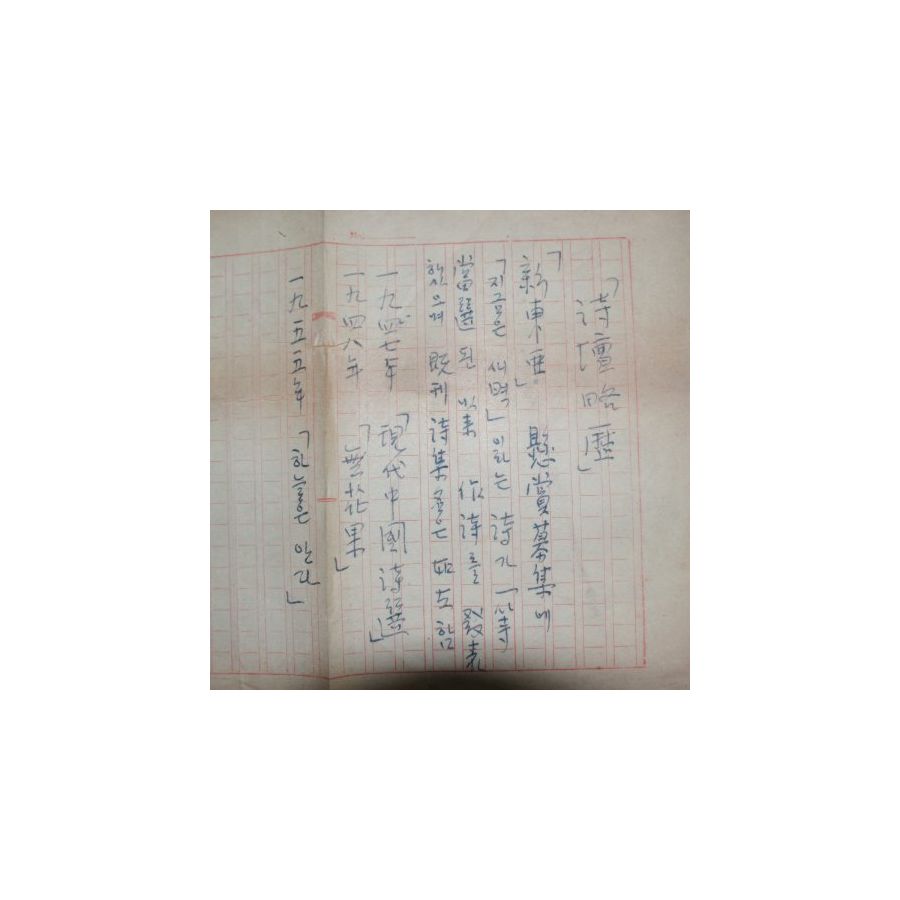 「詩壇略歷」
「新東亞」 懸賞募集에
「지금은 새벽」이라는 詩가 一等
當選된 以來 作詩를 發表
했으며 旣刊 詩集은 如左함
一九四七年 「現代中國詩選」
一九四八年 「無花果」
一九五五年 「하늘은 안다」